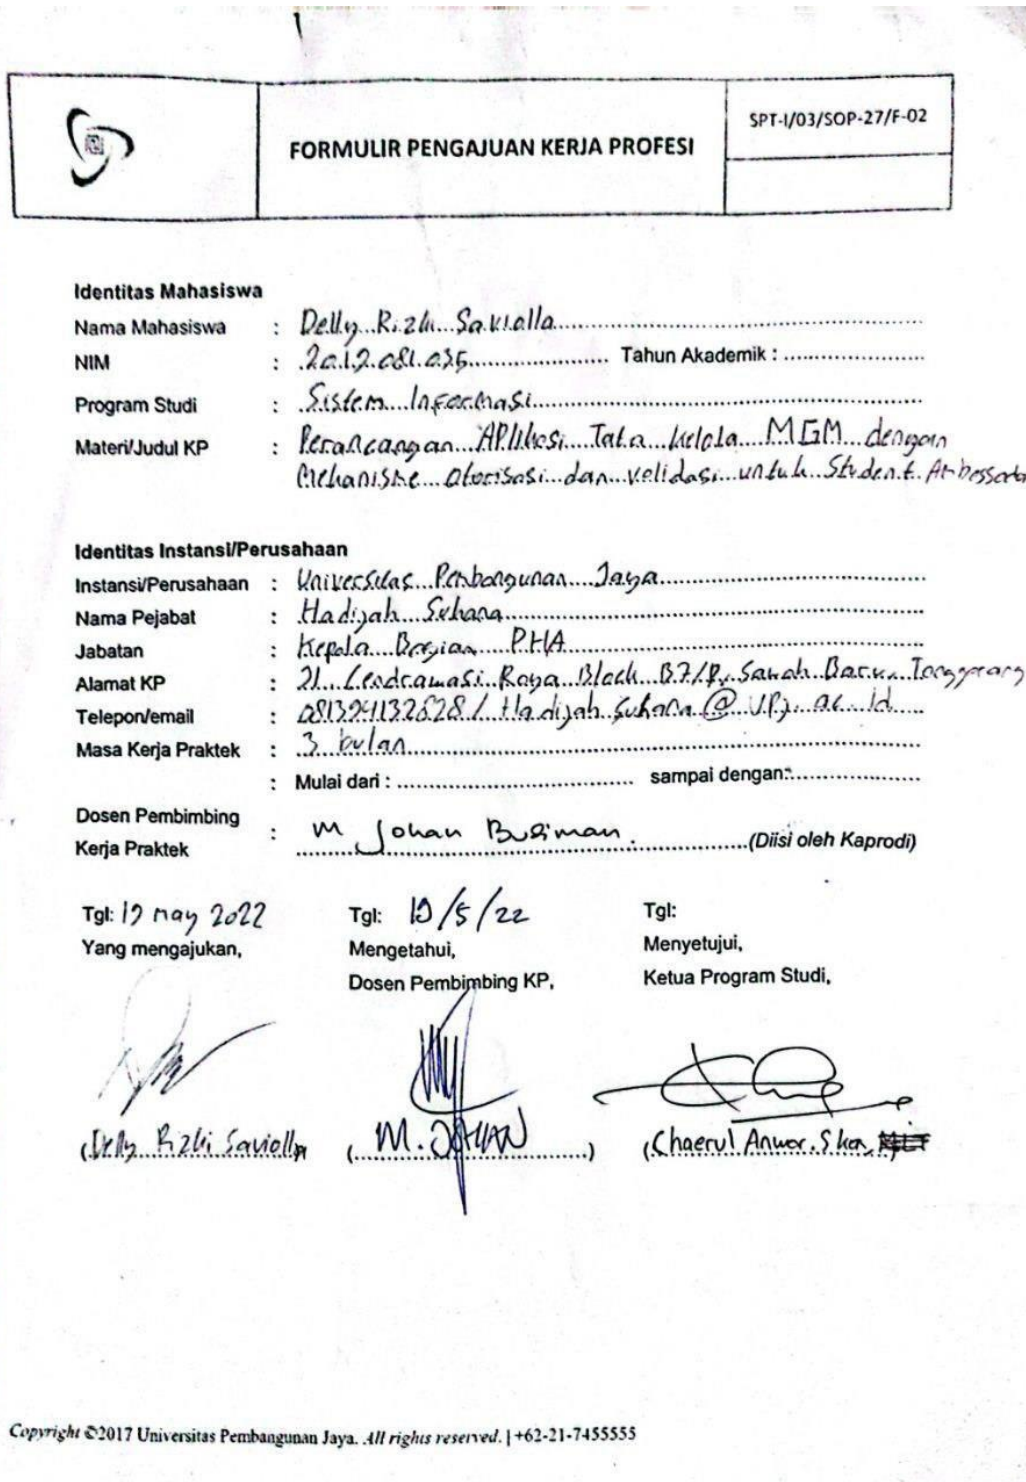 FORMULIR PENGAJUAN KERJA PROFESI
SPT-I/03/SOP-27/F-02
Identitas Mahasiswa
Nama Mahasiswa : Delly Rizki Saviolla
NIM : 2019.081.035 Tahun Akademik :
Program Studi : Sistem Informasi
Materi/Judul KP : Perancangan Aplikasi Tata Kelola MGM dengan
Mekanisme otorisasi dan validasi untuk Student
Identitas Instansi/Perusahaan
Instansi/Perusahaan : Universitas Pembangunan Jaya
Nama Pejabat : Hadijah Suhana
Jabatan : Kepala Bagian PHA
Alamat KP : Jl. Cendrawasi Raya Block B7/P, Sawah Baru, Tanggerang
Telepon/email : / Hadijah.Suhana@upj.ac.id
Masa Kerja Praktek : 3 bulan
: Mulai dari : sampai dengan:
Dosen Pembimbing
Kerja Praktek : M Johan Budiman (Diisi oleh Kaprodi)
Tgl: 19 may 2022 Tgl: 19/5/22 Tgl:
Yang mengajukan, Mengetahui, Menyetujui,
Dosen Pembimbing KP, Ketua Program Studi,
(Delly Rizki Saviolla) (M. JOHAN) (Chaerul Anwar, S.Kom,
Copyright ©2017 Universitas Pembangunan Jaya. All rights reserved. | +62-21-7455555